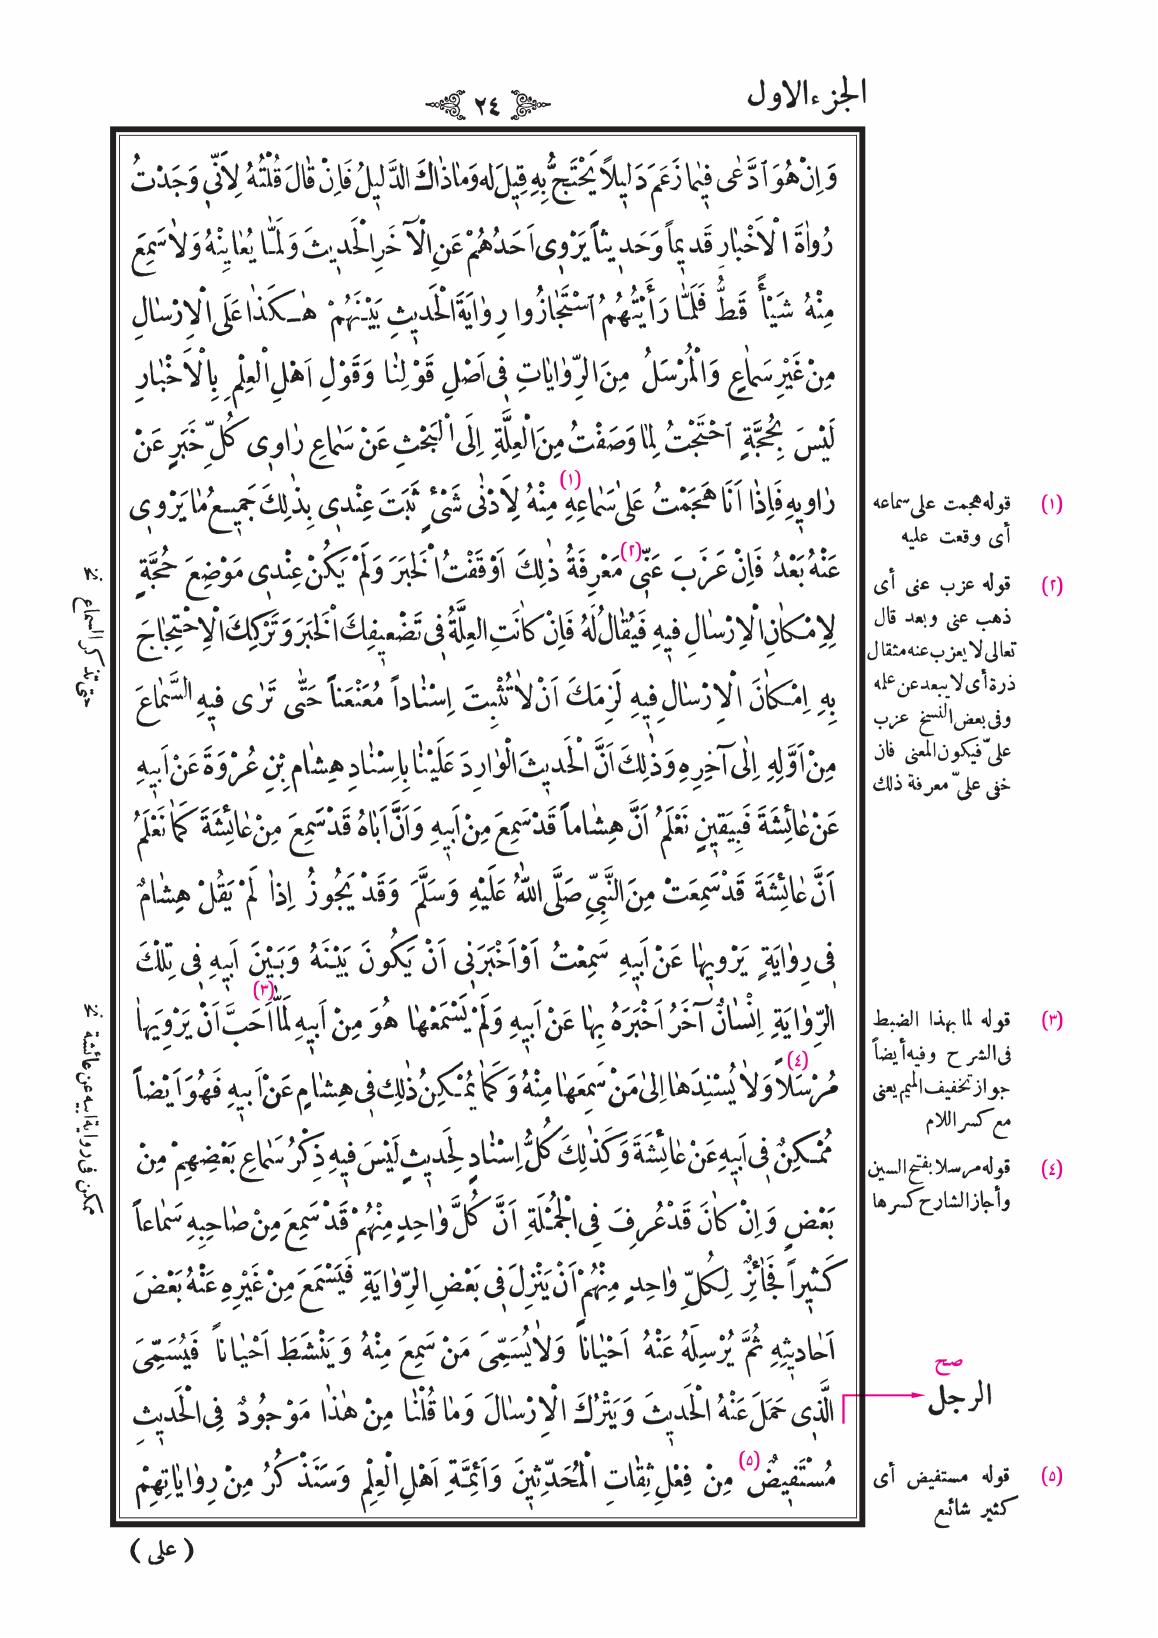 الجزء الاول
٢٤
وَاِنْ هُوَ ٱدَّعٰى فٖيمٰا زَعَمَ دَلٖيلاً يَحْتَجُّ بِهٖ قٖيلَ لَه وَمٰا ذٰاكَ الدَّلٖيلُ فَاِنْ قٰالَ قُلْتُهُ لِاَنّٖى وَجَدْتُ
رُوٰاةَ الْاَخْبٰارِ قَدٖيماً وَحَدٖيثاً يَرْوٖى اَحَدُهُمْ عَنِ الْآخَرِ الْحَدٖيثَ وَلَمّٰا يُعٰايِنْهُ وَلاٰ سَمِعَ
مِنْهُ شَيْأً قَطُّ فَلَمّٰا رَأَيْتُهُمُ ٱسْتَجٰازُوا رِوٰايَةَ الْحَدٖيثِ بَيْنَهُمْ هٰكَذٰا عَلَى الْاِرْسٰالِ
مِنْ غَيْرِ سَمٰاعٍ وَالْمُرْسَلُ مِنَ الرِّوٰايٰاتِ فٖى اَصْلِ قَوْلِنٰا وَقَوْلِ اَهْلِ الْعِلْمِ بِالْاَخْبٰارِ
لَيْسَ بِحُجَّةٍ ٱحْتَجْتُ لِمٰا وَصَفْتُ مِنَ الْعِلَّةِ اِلَى الْبَحْثِ عَنْ سَمٰاعِ رٰاوٖى كُلِّ خَبَرٍ عَنْ
رٰاوٖيهِ فَاِذٰا اَنَا هَجَمْتُ عَلىٰ سَمٰاعِهٖ (١) مِنْهُ لِاَدْنٰى شَىْءٍ ثَبَتَ عِنْدٖى بِذٰلِكَ جَمٖيعُ مٰا يَرْوٖى
عَنْهُ بَعْدُ فَاِنْ عَزَبَ عَنّٖى (٢) مَعْرِفَةُ ذٰلِكَ اَوْقَفْتُ الْخَبَرَ وَلَمْ يَكُنْ عِنْدٖى مَوْضِعَ حُجَّةٍ
لِاِمْكٰانِ الْاِرْسٰالِ فٖيهِ فَيُقٰالُ لَهُ فَاِنْ كٰانَتِ الْعِلَّةُ فٖى تَضْعٖيفِكَ الْخَبَرَ وَتَرْكِكَ الْاِحْتِجٰاجَ
بِهٖ اِمْكٰانَ الْاِرْسٰالِ فٖيهِ لَزِمَكَ اَنْ لاٰ تُثْبِتَ اِسْنٰاداً مُعَنْعَناً حَتّٰى تَرٰى فٖيهِ السَّمٰاعَ
مِنْ اَوَّلِهٖ اِلٰى آخِرِهٖ وَذٰلِكَ اَنَّ الْحَدٖيثَ الْوٰارِدَ عَلَيْنٰا بِاِسْنٰادِ هِشٰامِ بْنِ عُرْوَةَ عَنْ اَبٖيهِ
عَنْ عٰائِشَةَ فَبِيَقٖينٍ نَعْلَمُ اَنَّ هِشٰاماً قَدْ سَمِعَ مِنْ اَبٖيهِ وَاَنَّ اَبٰاهُ قَدْ سَمِعَ مِنْ عٰائِشَةَ كَمٰا نَعْلَمُ
اَنَّ عٰائِشَةَ قَدْ سَمِعَتْ مِنَ النَّبِىِّ صَلَّى اللّٰهُ عَلَيْهِ وَسَلَّمَ وَقَدْ يَجُوزُ اِذٰا لَمْ يَقُلْ هِشٰامٌ
فٖى رِوٰايَةٍ يَرْوٖيهٰا عَنْ اَبٖيهِ سَمِعْتُ اَوْ اَخْبَرَنٖى اَنْ يَكُونَ بَيْنَهُ وَبَيْنَ اَبٖيهِ فٖى تِلْكَ
الرِّوٰايَةِ اِنْسٰانٌ آخَرُ اَخْبَرَهُ بِهٰا عَنْ اَبٖيهِ وَلَمْ يَسْمَعْهٰا هُوَ مِنْ اَبٖيهِ لَمّٰا (٣) اَحَبَّ اَنْ يَرْوِيَهٰا
مُرْسَلاً (٤) وَلاٰ يُسْنِدَهٰا اِلىٰ مَنْ سَمِعَهٰا مِنْهُ وَكَمٰا يُمْكِنُ ذٰلِكَ فٖى هِشٰامٍ عَنْ اَبٖيهِ فَهُوَ اَيْضاً
مُمْكِنٌ فٖى اَبٖيهِ عَنْ عٰائِشَةَ وَكَذٰلِكَ كُلُّ اِسْنٰادٍ لِحَدٖيثٍ لَيْسَ فٖيهِ ذِكْرُ سَمٰاعِ بَعْضِهِمْ مِنْ
بَعْضٍ وَاِنْ كٰانَ قَدْ عُرِفَ فِى الْجُمْلَةِ اَنَّ كُلَّ وٰاحِدٍ مِنْهُمْ قَدْ سَمِعَ مِنْ صٰاحِبِهٖ سَمٰاعاً
كَثٖيراً فَجٰائِزٌ لِكُلِّ وٰاحِدٍ مِنْهُمْ اَنْ يَنْزِلَ فٖى بَعْضِ الرِّوٰايَةِ فَيَسْمَعَ مِنْ غَيْرِهٖ عَنْهُ بَعْضَ
اَحٰادٖيثِهٖ ثُمَّ يُرْسِلَهُ عَنْهُ اَحْيٰاناً وَلاٰ يُسَمِّىَ مَنْ سَمِعَ مِنْهُ وَيَنْشَطَ اَحْيٰاناً فَيُسَمِّىَ
الَّذٖى حَمَلَ عَنْهُ الْحَدٖيثَ وَيَتْرُكَ الْاِرْسٰالَ وَمٰا قُلْنٰا مِنْ هٰذٰا مَوْجُودٌ فِى الْحَدٖيثِ
مُسْتَفٖيضٌ (٥) مِنْ فِعْلِ ثِقٰاتِ الْمُحَدِّثٖينَ وَاَئِمَّةِ اَهْلِ الْعِلْمِ وَسَنَذْكُرُ مِنْ رِوٰايٰاتِهِمْ
( على )
(١) قوله هجمت على سماعه
أى وقعت عليه
(٢) قوله عزب عنى أى
ذهب عنى وبعد قال
تعالى لا يعزب عنه مثقال
ذرة أى لا يبعد عن علمه
وفى بعض النسخ عزب
علىّ فيكون المعنى فان
خفى علىّ معرفة ذلك
(٣) قوله لما بهذا الضبط
فى الشرح وفيه أيضاً
جواز تخفيف الميم يعنى
مع كسر اللام
(٤) قوله مرسلا بفتح السين
وأجاز الشارح كسرها
صح
الرجل
(٥) قوله مستفيض أى
كثير شائع
حتى تذكر السماع نخ
ممكن فى رواية ابيه عن عائشة نخ